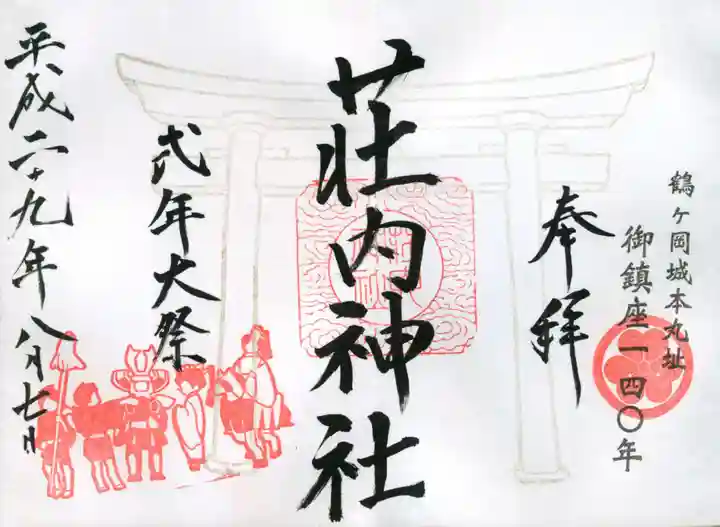 鶴ヶ岡城本丸址
御鎮座一四〇年
奉拝
荘内神社
式年大祭
平成二十九年八月七日